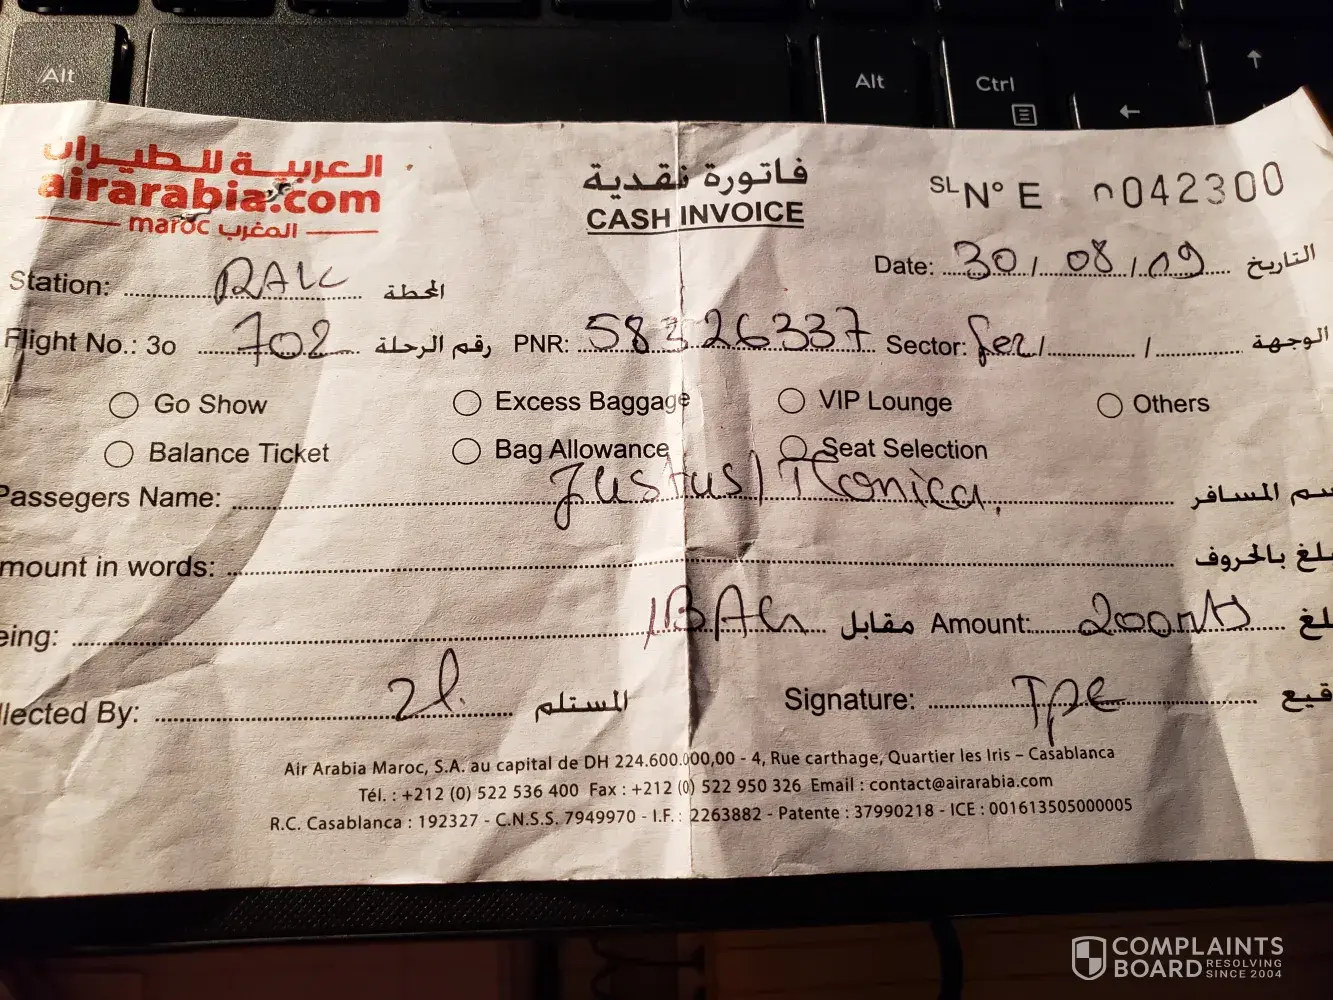 Alt
Alt
Ctrl
←
↑
العربية للطيران
airarabia.com
maroc المغرب
فاتورة نقدية
CASH INVOICE
SL N° E 0042300
Station: RAK المحطة
Date: 30/08/19 التاريخ
Flight No.: 3o 702 رقم الرحلة PNR: 58326337 Sector: fez / / الوجهة
Go Show Excess Baggage VIP Lounge Others
Balance Ticket Bag Allowance Seat Selection
Passegers Name: Justus/Monica سم المسافر
mount in words: لغ بالحروف
eing: 1BAG مقابل Amount: 200 لغ
llected By: المستلم Signature: TPE قيع
Air Arabia Maroc, S.A. au capital de DH 224.600.000,00 - 4, Rue carthage, Quartier les Iris – Casablanca
Tél. : +212 (0) 522 536 400 Fax : +212 (0) 522 950 326 Email : contact@airarabia.com
R.C. Casablanca : 192327 - C.N.S.S. 7949970 - I.F. : 2263882 - Patente : 37990218 - ICE : 001613505000005
COMPLAINTS
BOARD RESOLVING SINCE 2004